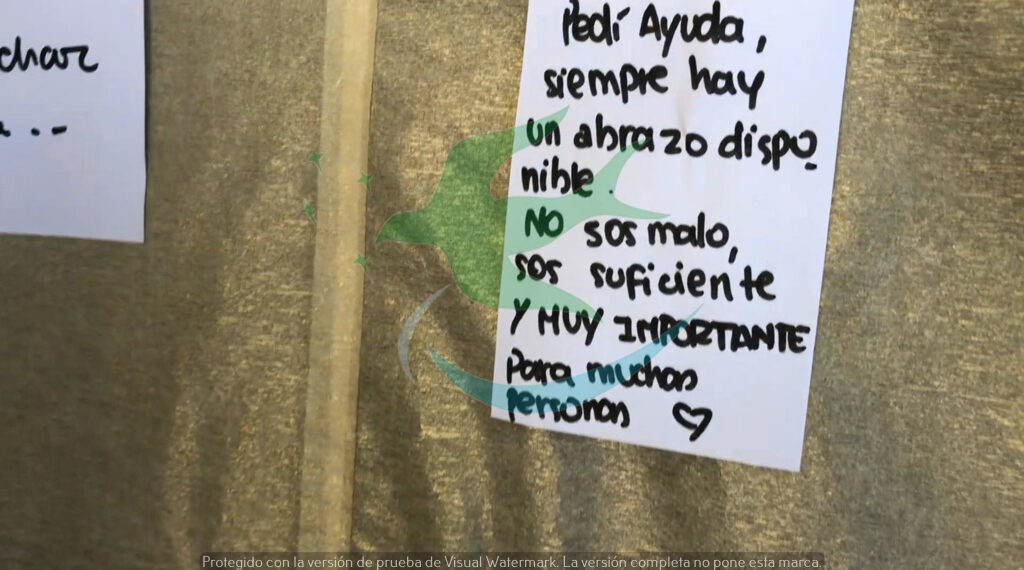 char
Pedí Ayuda,
siempre hay
un abrazo dispo
nible.
NO sos malo,
sos suficiente
Y MUY IMPORTANTE
Para muchas
personas ♡
Protegido con la versión de prueba de Visual Watermark. La versión completa no pone esta marca.